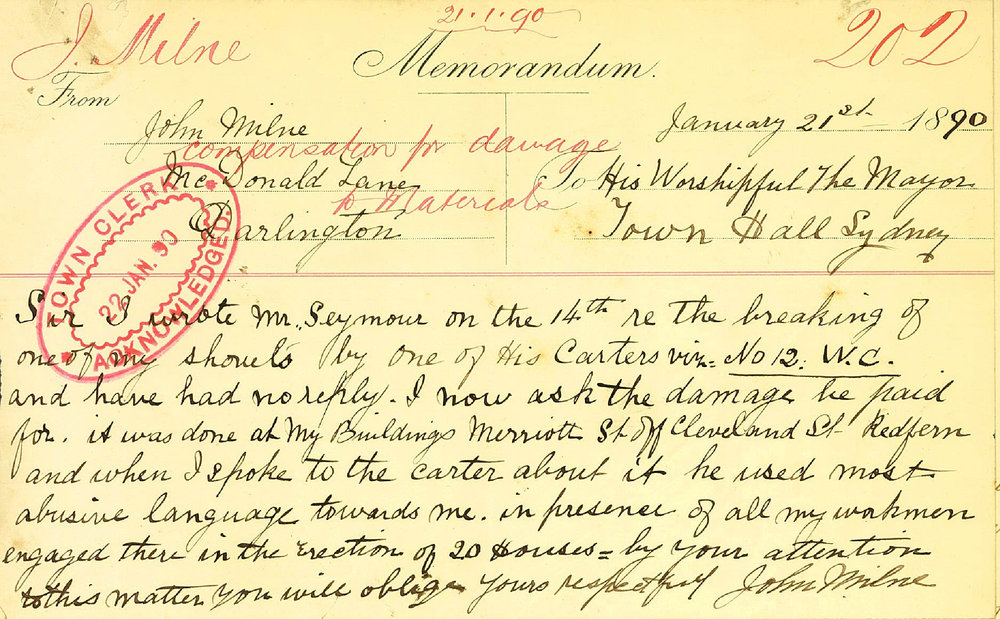 21.1.90
J. Milne
202
Memorandum.
From
John Milne
January 21st 1890
compensation for damage
McDonald Lane
To His Worshipful The Mayor
to Materials
Darlington
Town Hall Sydney
TOWN CLERK
22 JAN. 90
ACKNOWLEDGED.
Sir I wrote Mr. Seymour on the 14th re the breaking of
one of my shovels by one of His Carters viz= No 12. W.C.
and have had no reply. I now ask the damage be paid
for. it was done at My Buildings Merriott St off Cleveland St Redfern
and when I spoke to the carter about it he used most
abusive language towards me. in presense of all my workmen
engaged there in the Erection of 20 Houses = by your attention
to this matter you will oblige yours respectful John Milne